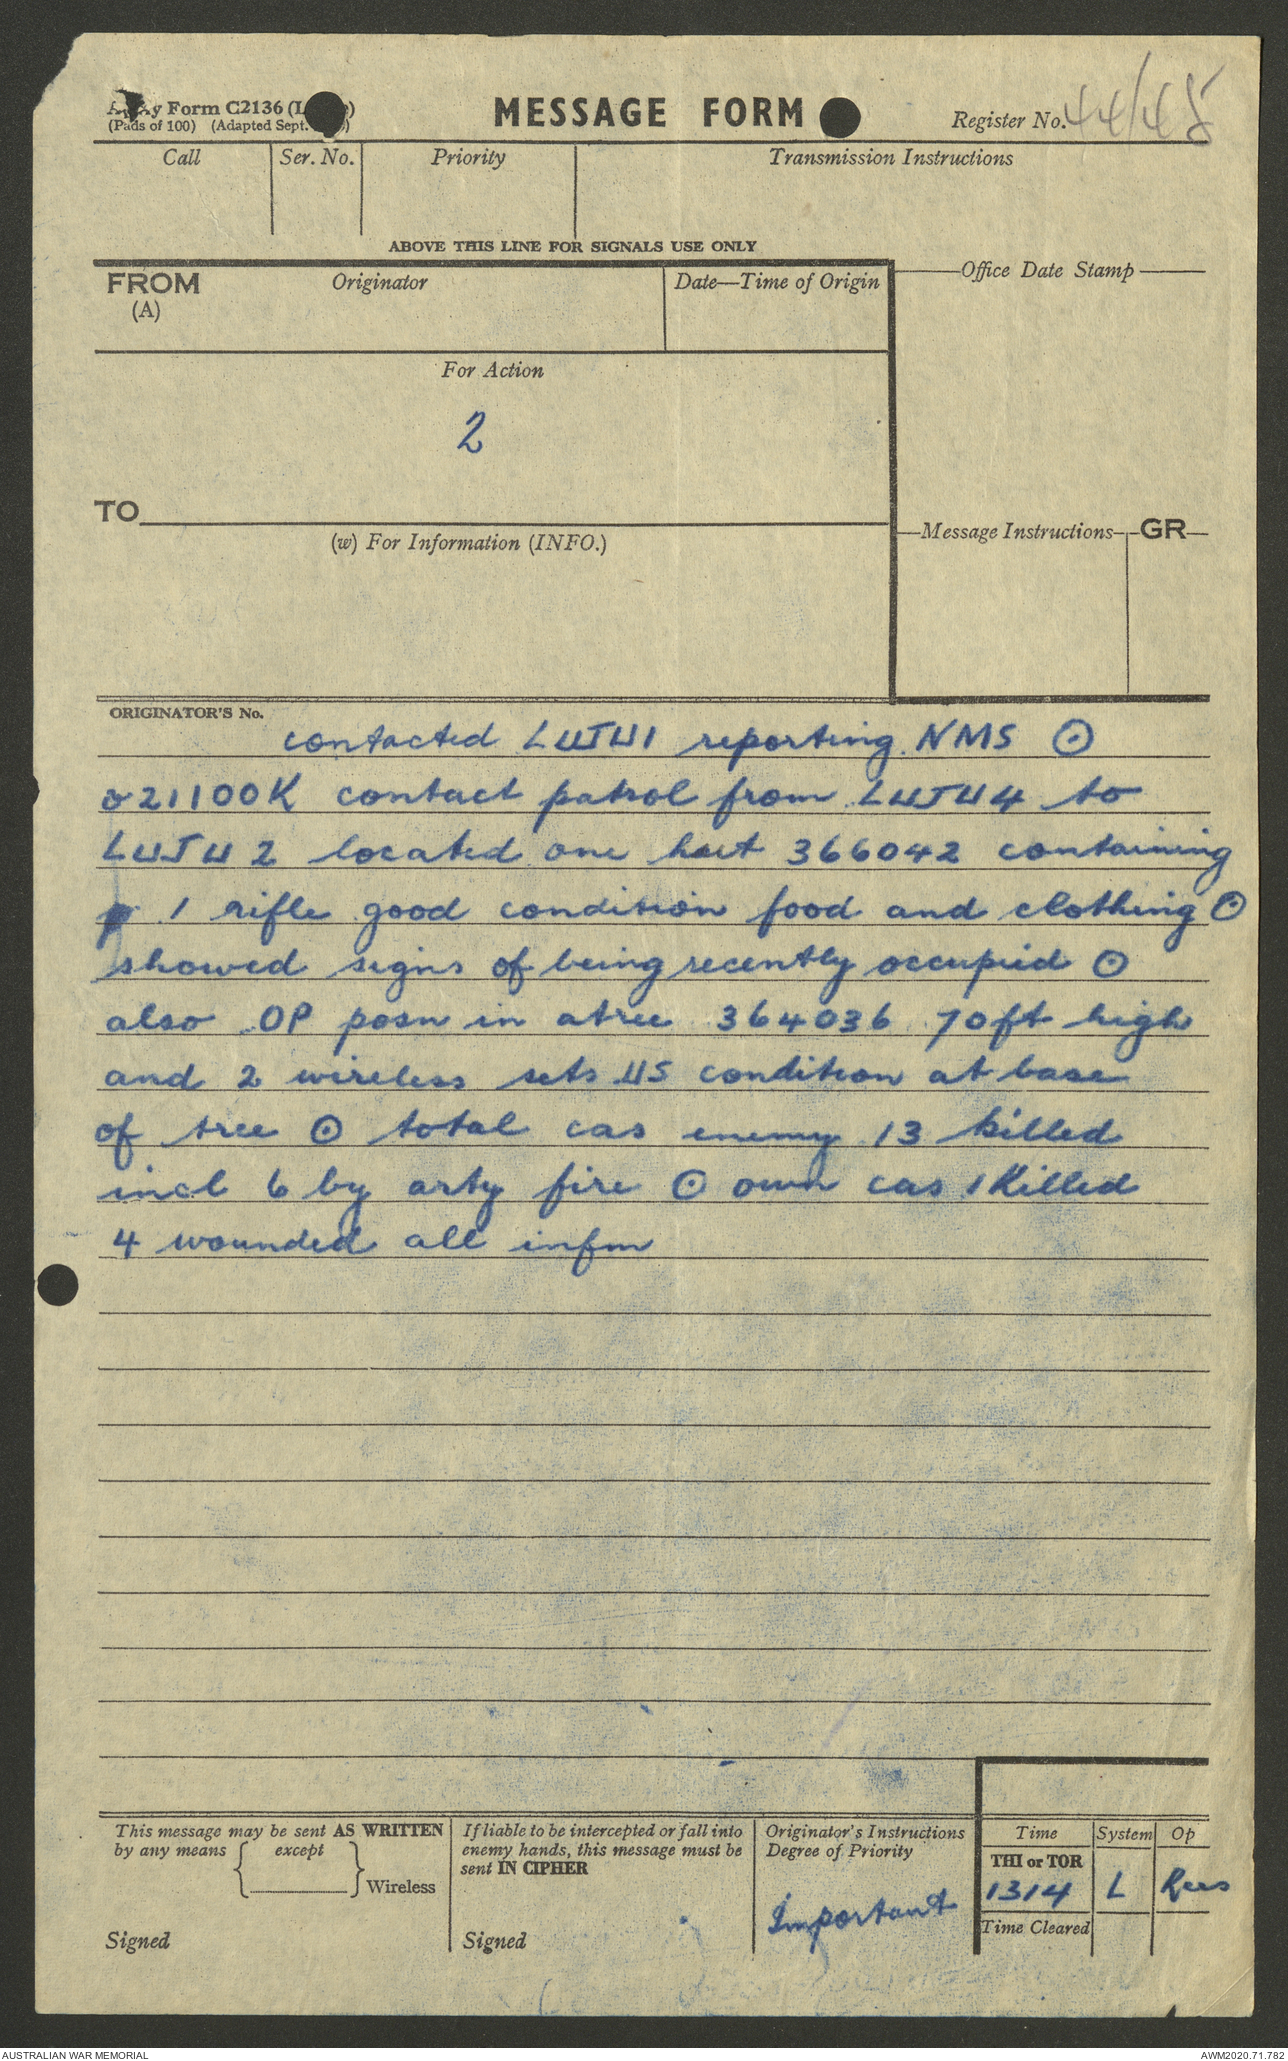 Army Form C2136 (L
(Pads of 100) (Adapted Sept.
MESSAGE FORM
Register No. 44/48
Call
Ser. No.
Priority
Transmission Instructions
ABOVE THIS LINE FOR SIGNALS USE ONLY
FROM
(A)
Originator
Date—Time of Origin
Office Date Stamp
For Action
2
TO
(w) For Information (INFO.)
Message Instructions
GR
ORIGINATOR'S No.
contacted LUJU1 reporting NMS ⊙
021100K contact patrol from LUJU4 to
LUJU 2 located one hut 366042 containing
1 rifle good condition food and clothing ⊙
showed signs of being recently occupied ⊙
also OP posn in a tree 364036 70ft high
and 2 wireless sets US condition at base
of tree ⊙ total cas enemy 13 killed
incl 6 by arty fire ⊙ own cas 1 Killed
4 wounded all infm
This message may be sent AS WRITTEN
by any means except
Wireless
Signed
If liable to be intercepted or fall into
enemy hands, this message must be
sent IN CIPHER
Signed
Originator's Instructions
Degree of Priority
Important
Time
System
Op
THI or TOR
1314
L
Rees
Time Cleared
AUSTRALIAN WAR MEMORIAL
AWM2020.71.782